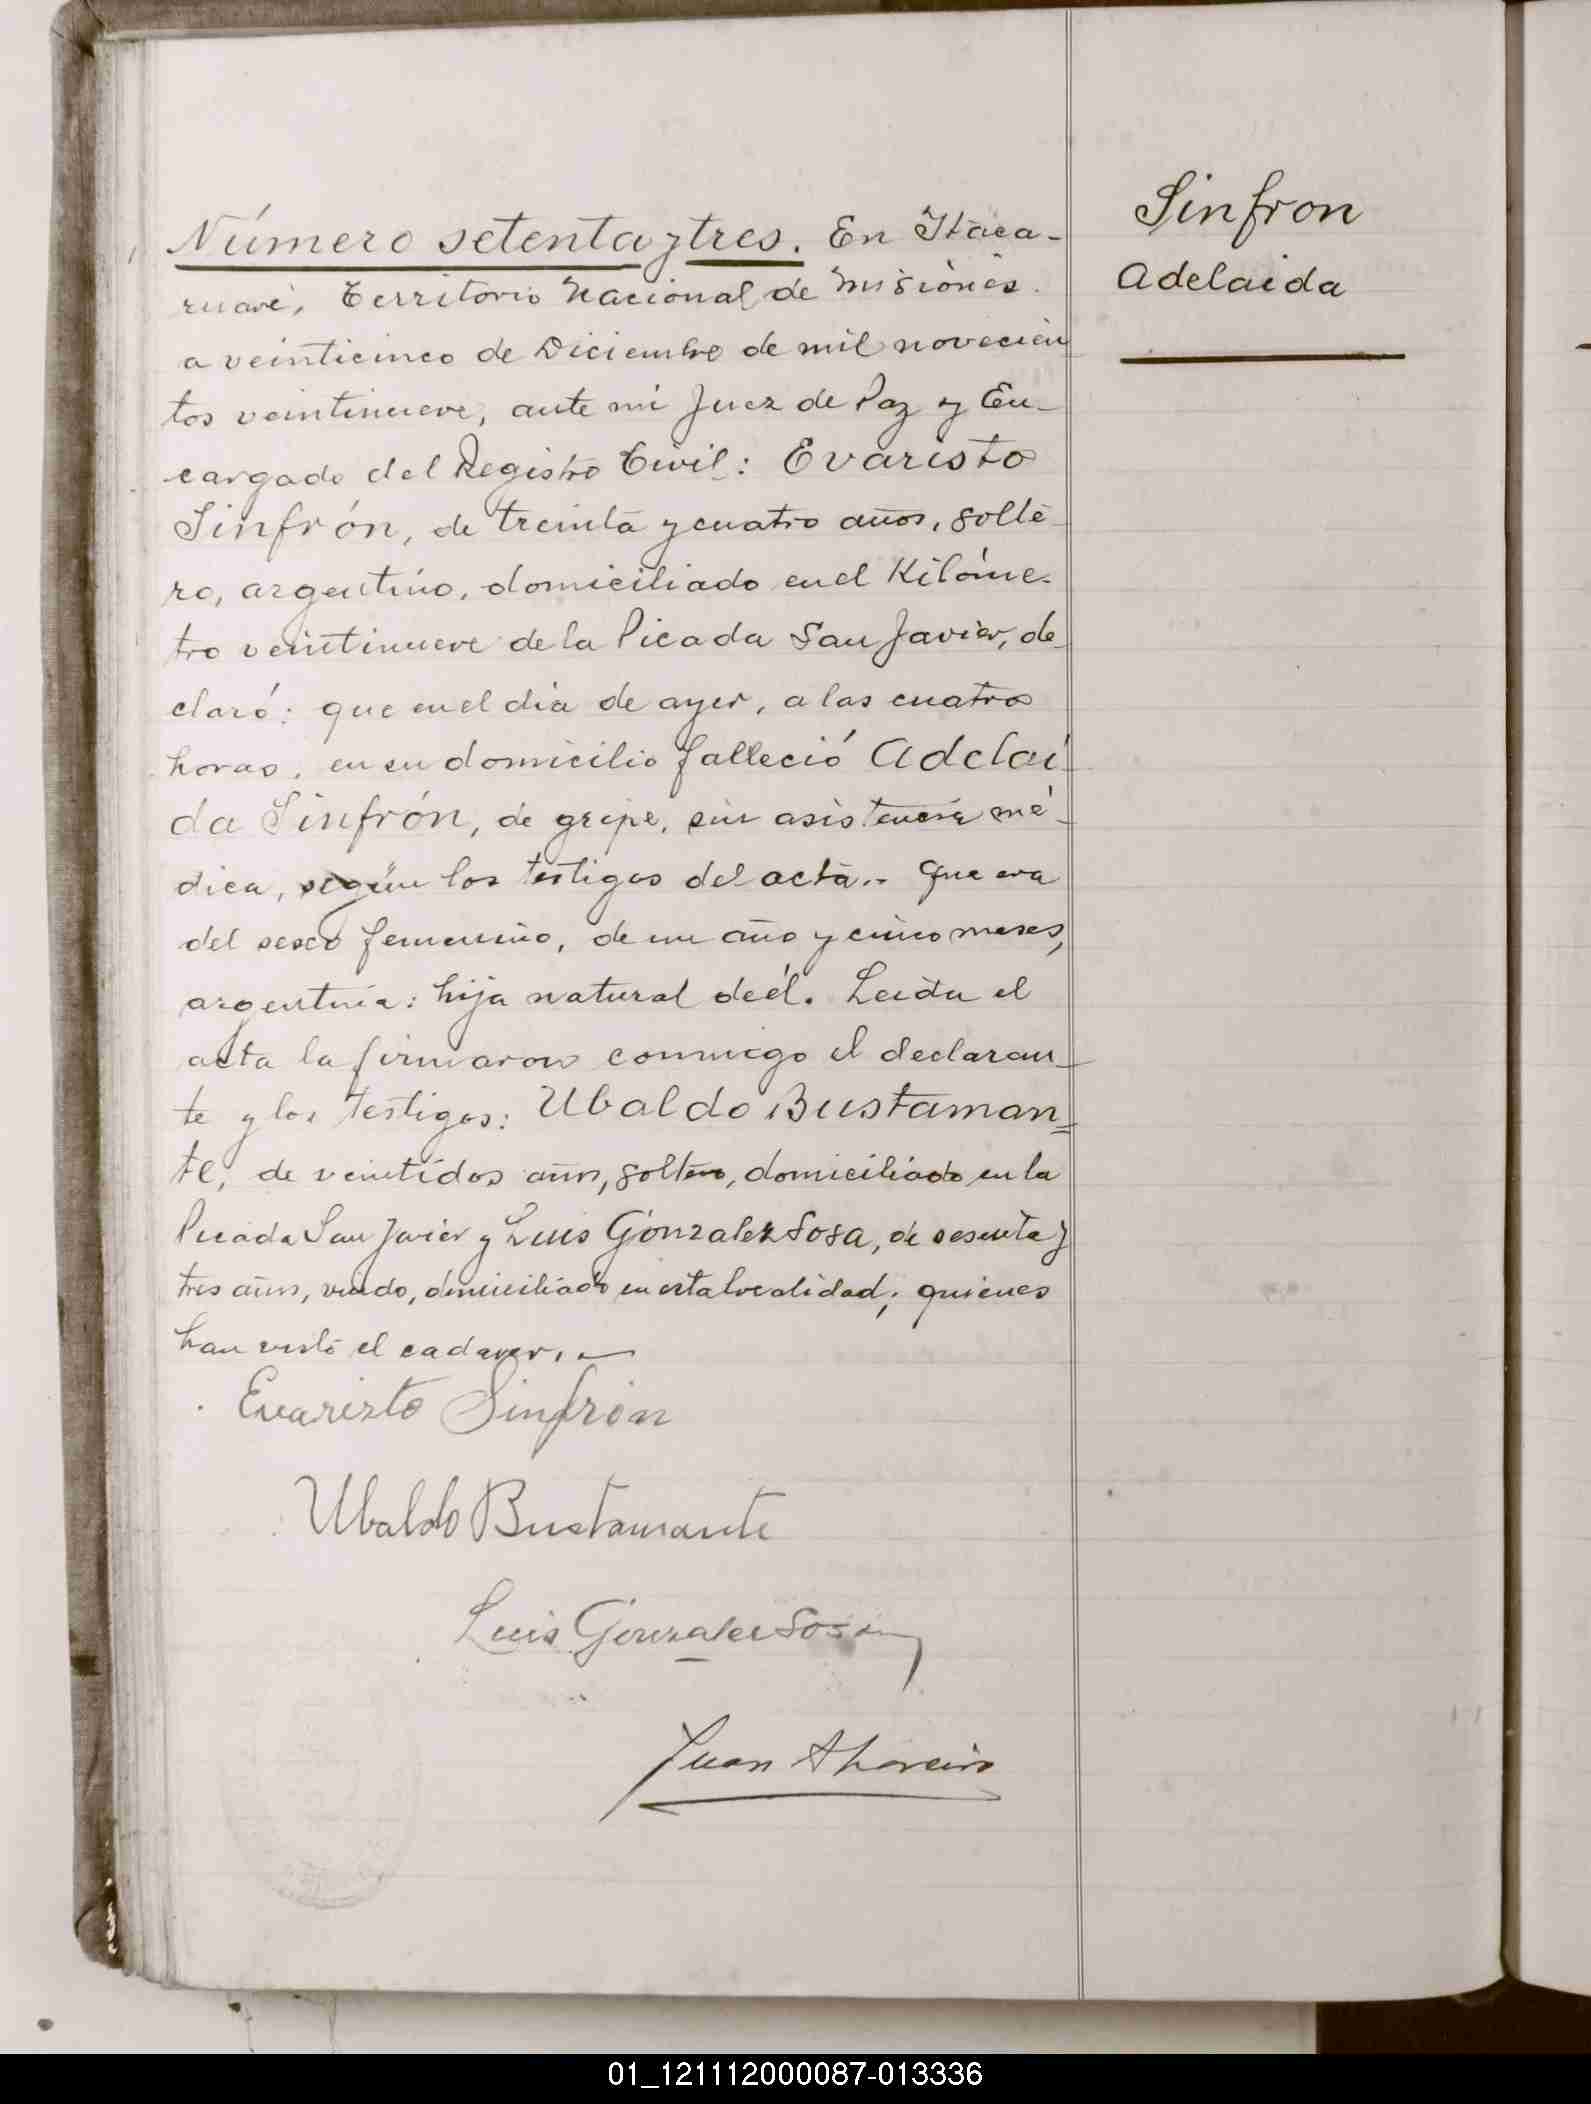 Número setenta y tres. En Itaca-
ruaré, Territorio Nacional de Misiones.
a veinticinco de Diciembre de mil novecien
tos veintinueve, ante mi Juez de Paz y En-
cargado del Registro Civil: Evaristo
Sinfrón, de treinta y cuatro años, solte-
ro, argentino, domiciliado en el Kilóme-
tro veintinueve de la Picada San Javier, de-
claró: que en el dia de ayer, a las cuatro
horas, en su domicilio falleció Adelai-
da Sinfrón, de gripe, sin asistencia mé-
dica, según los testigos del acta.. Que era
del sexo femenino, de un año y cinco meses,
argentina: hija natural de él. Leida el
acta la firmaron conmigo el declaran-
te y los testigos: Ubaldo Bustaman=
te, de veintidos años, soltero, domiciliado en la
Picada San Javier y Luis Gonzalez Sosa, de sesenta y
tres años, viudo, domiciliado en esta localidad; quienes
han visto el cadaver. —
Evaristo Sinfrón
Ubaldo Bustamante
Luis Gonzalez Sosa
Juan
Sinfron
Adelaida
01_121112000087-013336